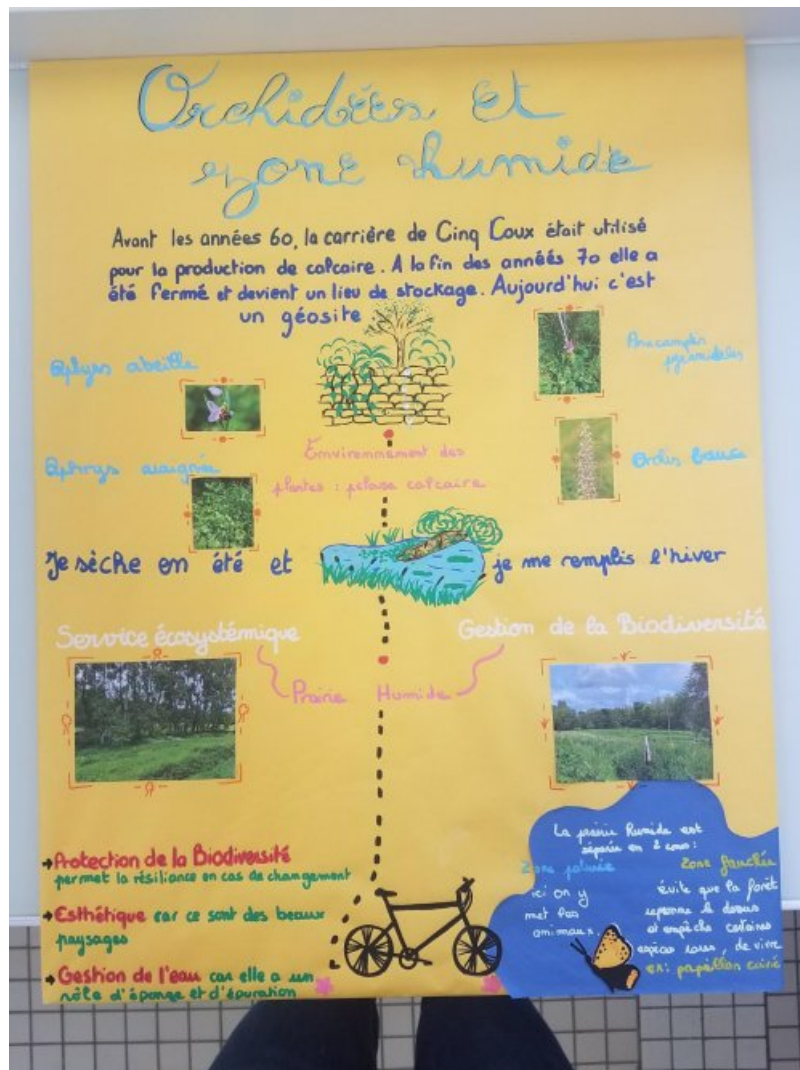 Orchidées et
zone humide
Avant les années 60, la carrière de Cinq Coux était utilisé
pour la production de calcaire. A la fin des années 70 elle a
été fermé et devient un lieu de stockage. Aujourd'hui c'est
un géosite
abeille
Ophrys araignée
Environnement des
plantes : pelouse calcaire
Orchis bouc
Je sèche en été et
je me remplis l'hiver
Service écosystémique
Gestion de la Biodiversité
Prairie Humide
→Protection de la Biodiversité
permet la résiliance en cas de changement
→Esthétique car ce sont des beaux
paysages
→Gestion de l'eau car elle a un
rôle d'éponge et d'épuration
La prairie humide est
séparée en 2
Zone
ici on y
met les
animaux.
Zone fauchée
évite que la forêt
reprenne le dessus
et empêche certaines
espèces rares, de vivre
ex: papillon cuivré